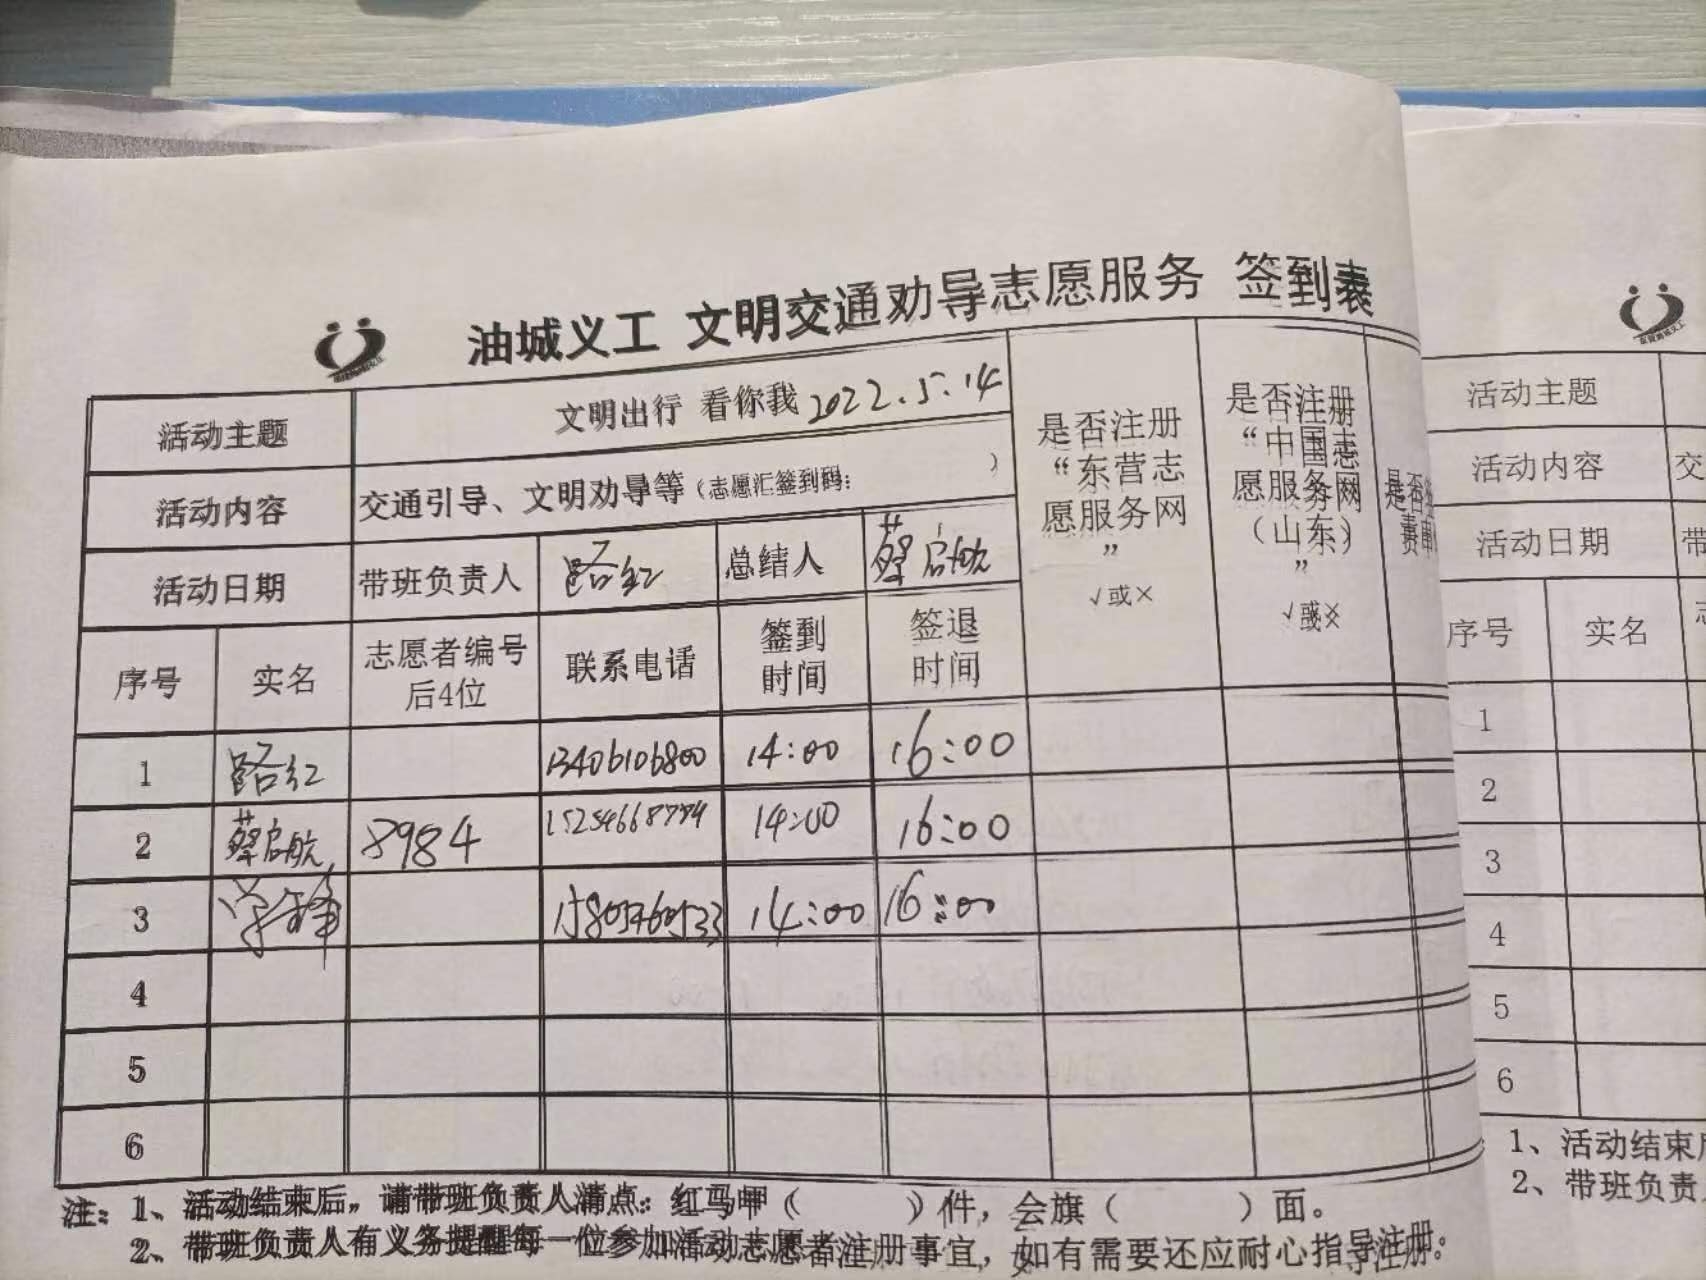 油城义工 文明交通劝导志愿服务 签到表
活动主题 文明出行 看你我 2022.5.14
活动内容 交通引导、文明劝导等（志愿汇签到码： ）
活动日期 带班负责人 路红 总结人 蔡启航
是否注册“东营志愿服务网” √或×
是否注册“中国志愿服务网（山东）” √或×
是否
责
序号 实名 志愿者编号后4位 联系电话 签到时间 签退时间
1 路红 13406106800 14:00 16:00
2 蔡启航 8984 14:00 16:00
3 14:00 16:00
4
5
6
注：1、活动结束后，请带班负责人清点：红马甲（ ）件，会旗（ ）面。
2、带班负责人有义务提醒每一位参加活动志愿者注册事宜，如有需要还应耐心指导注册；
活动主题
活动内容 交
活动日期 带
序号 实名 志
1
2
3
4
5
6
1、活动结束
2、带班负责